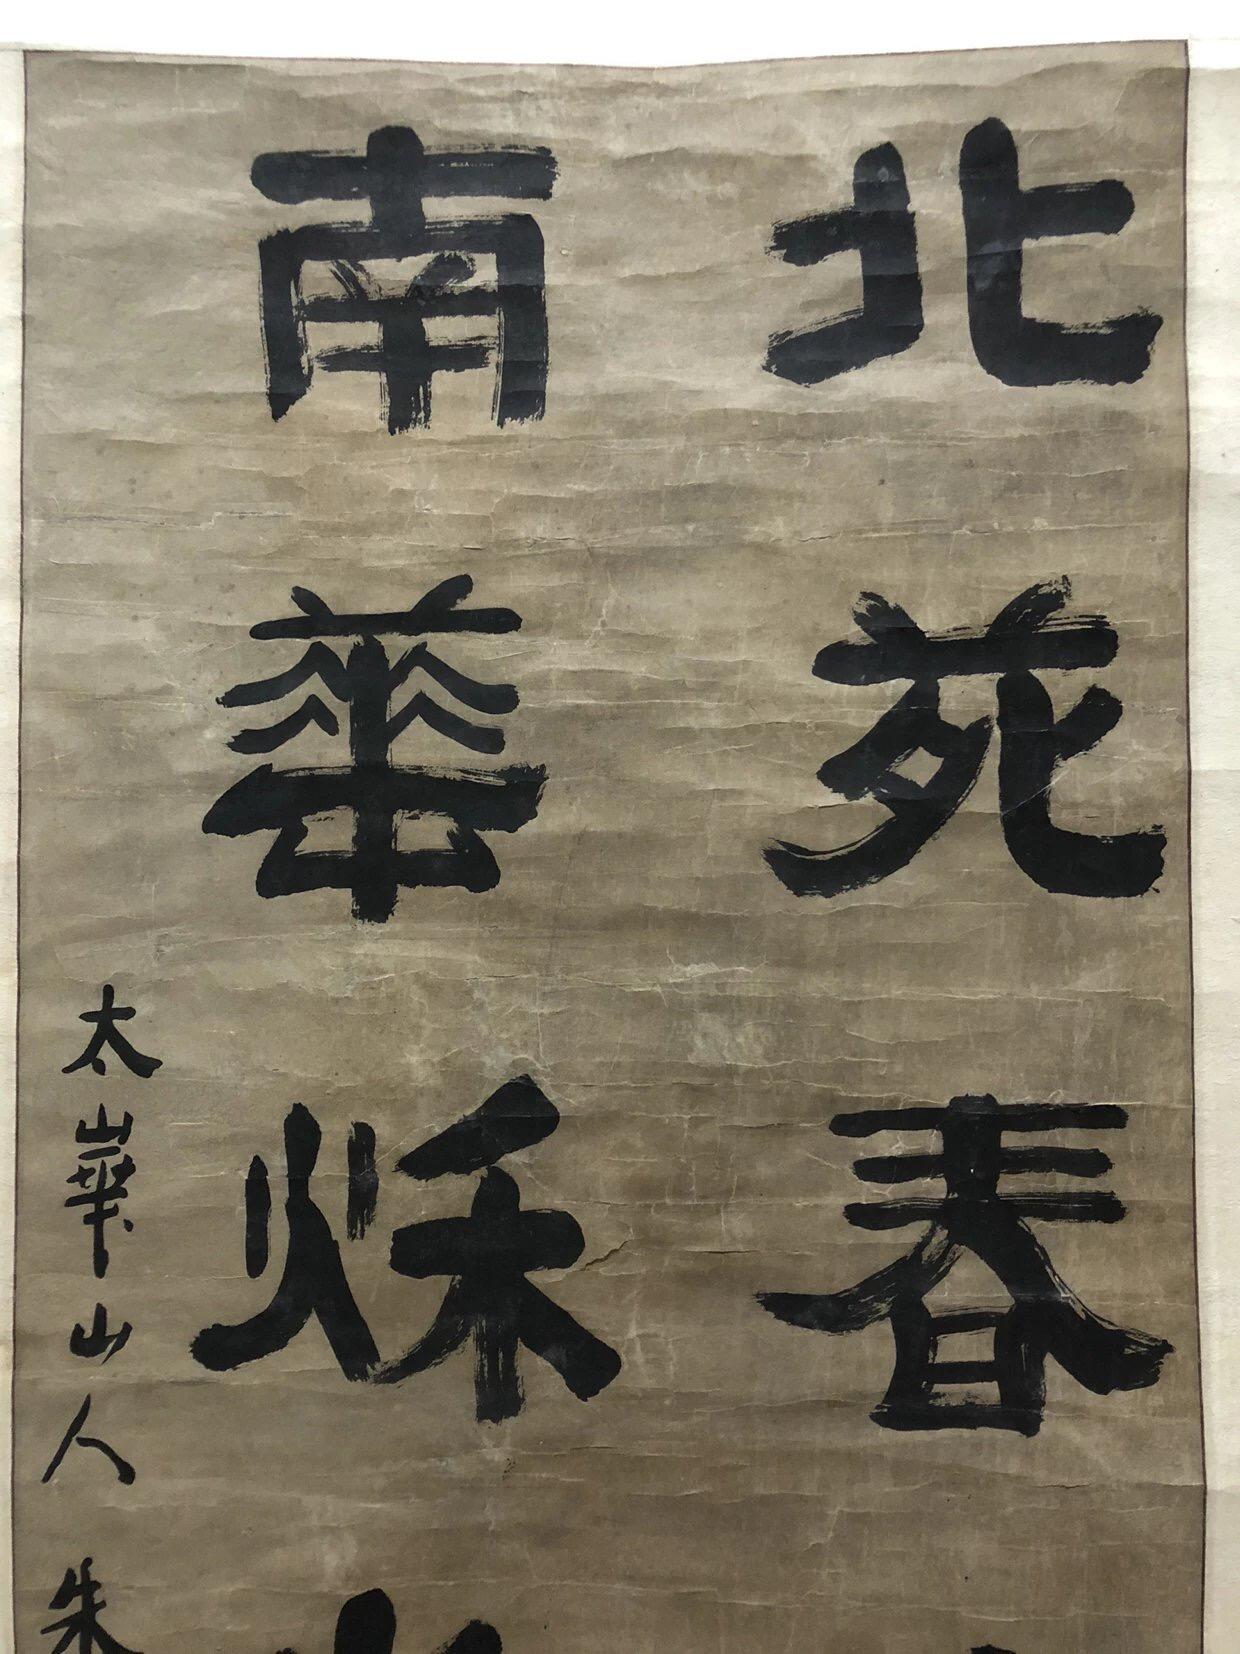 北苑春
南華秌
太崋山人朱